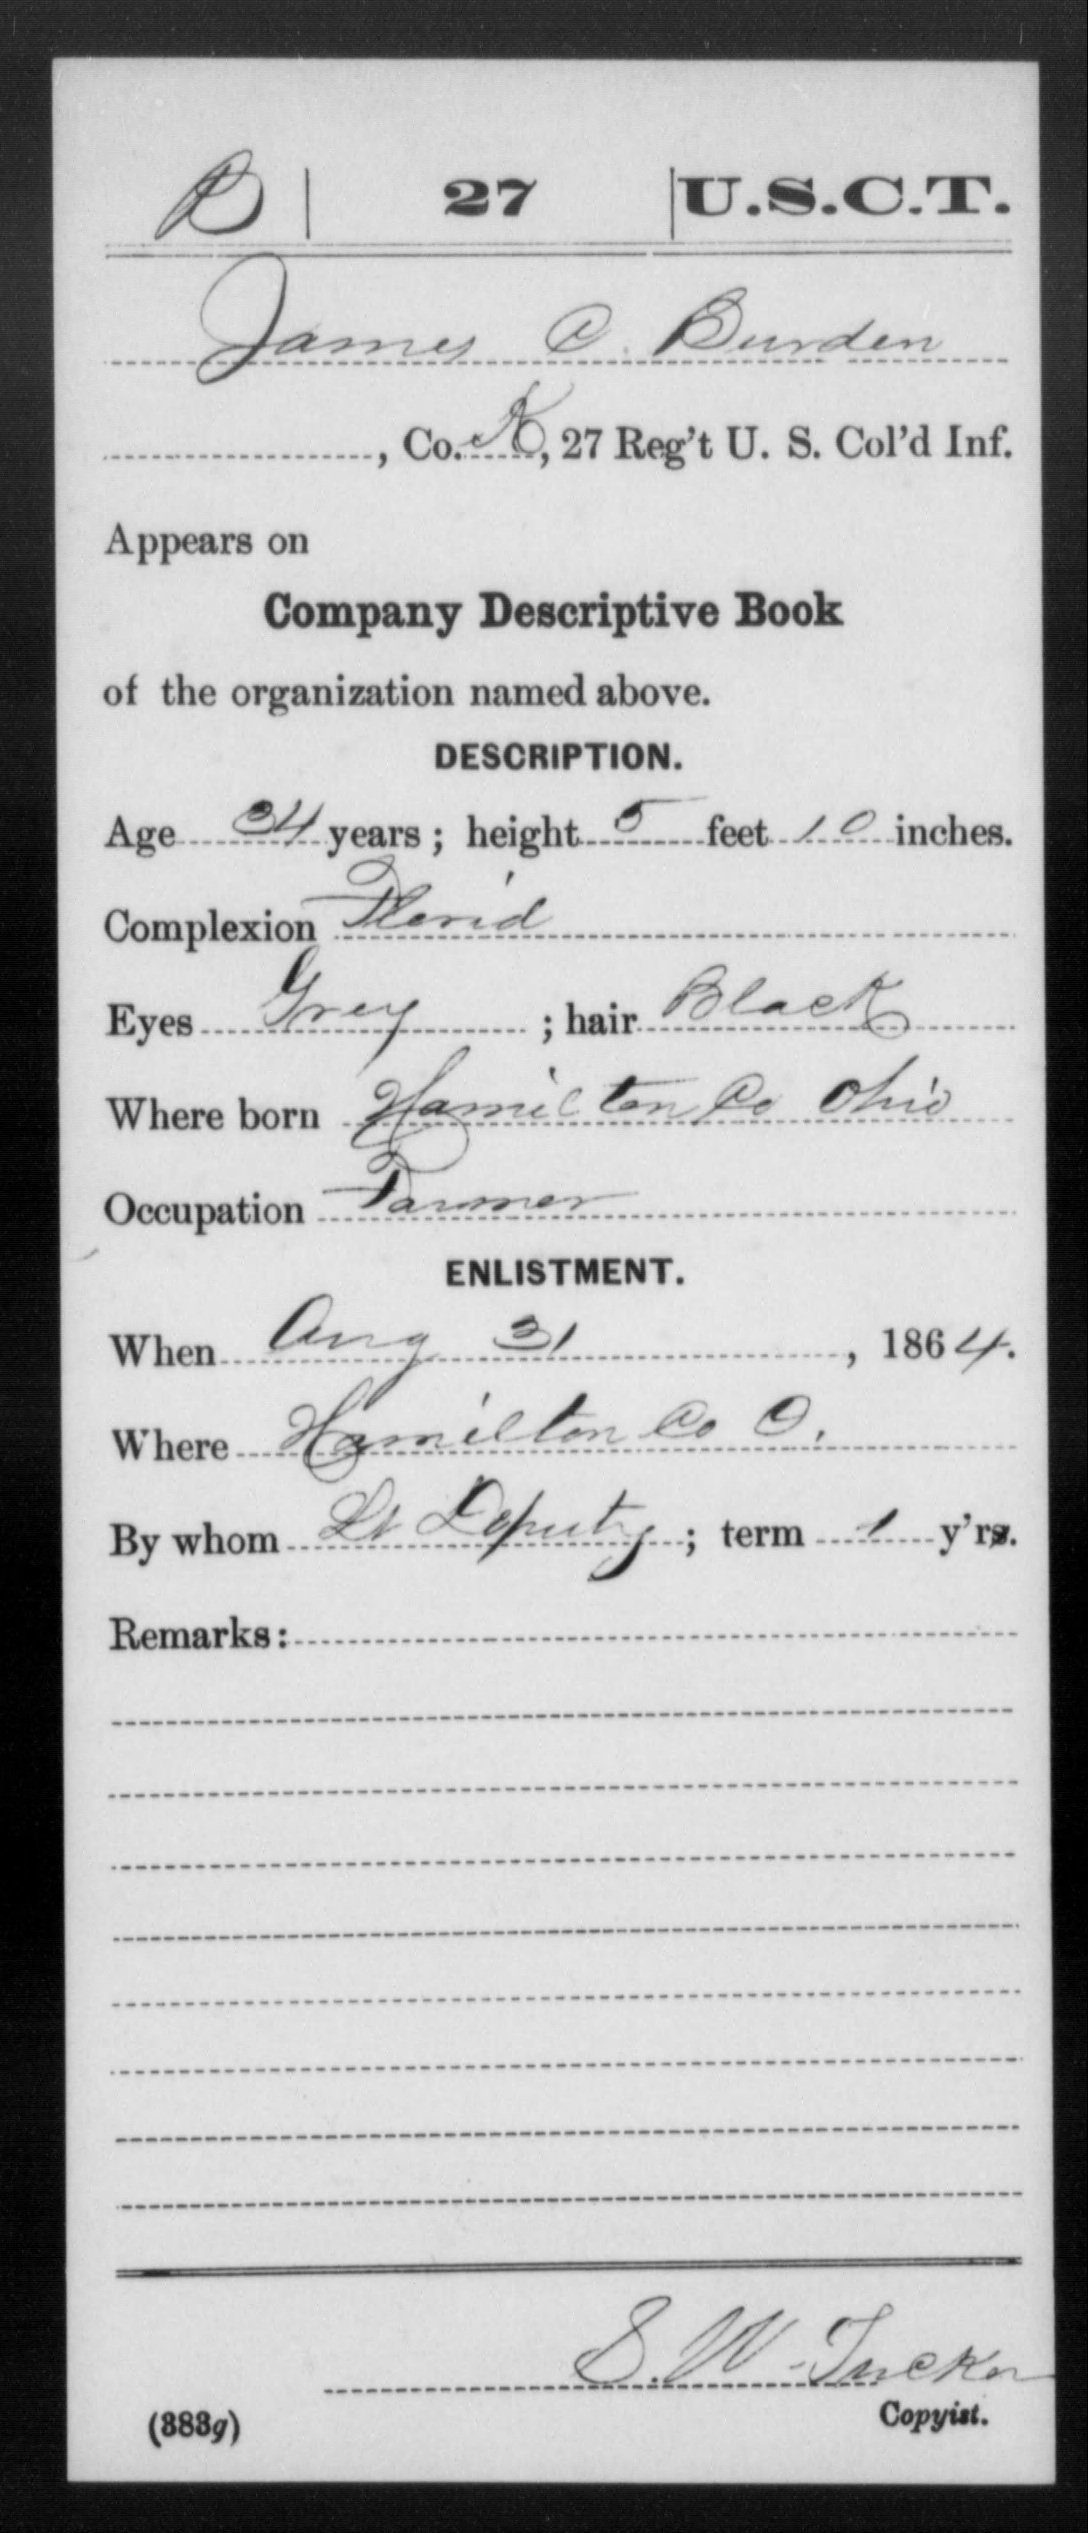 B | 27 | U.S.C.T.
James C. Burden
, Co. K, 27 Reg't U. S. Col'd Inf.
Appears on
Company Descriptive Book
of the organization named above.
DESCRIPTION.
Age 34 years; height 5 feet 10 inches.
Complexion Florid
Eyes Grey; hair Black
Where born Hamilton Co Ohio
Occupation Farmer
ENLISTMENT.
When Aug 31, 1864.
Where Hamilton Co O.
By whom Deputy; term 1 y'rs.
Remarks:
S. W. Tucker
(383g) Copyist.